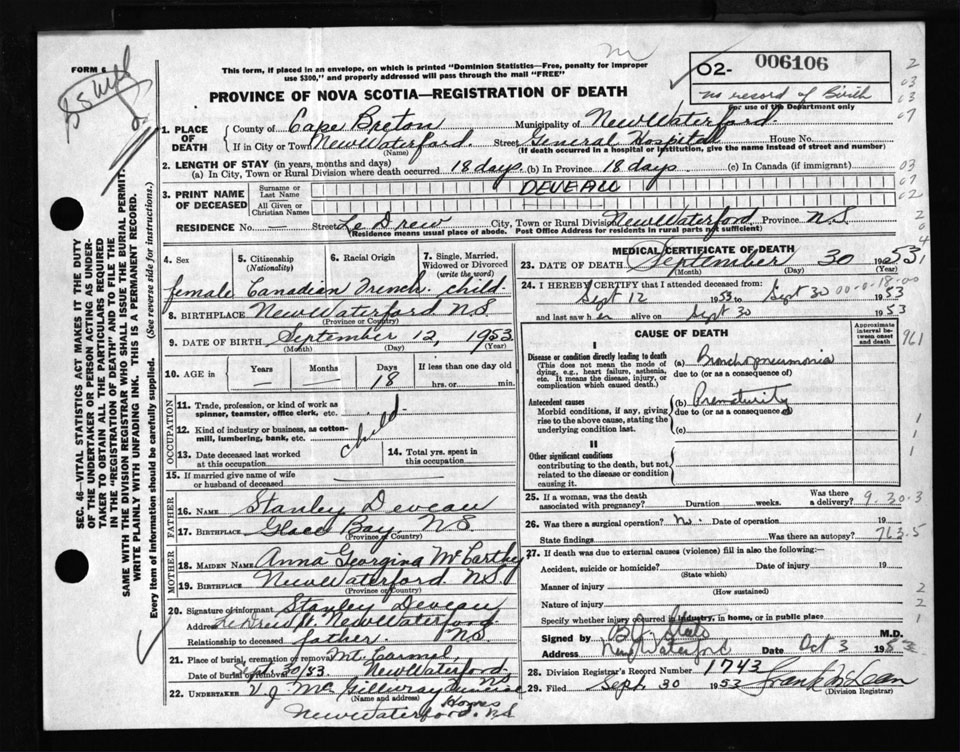 FORM 6
This form, if placed in an envelope, on which is printed "Dominion Statistics—Free, penalty for improper
use $300," and properly addressed will pass through the mail "FREE"
02- 006106
no record of Birth
for use of the Department only
PROVINCE OF NOVA SCOTIA—REGISTRATION OF DEATH
1. PLACE OF DEATH
County of Cape Breton Municipality of New Waterford
If in City or Town New Waterford. Street General Hospital House No.
(Name) (If death occurred in a hospital or institution, give the name instead of street and number)
2. LENGTH OF STAY (in years, months and days)
(a) In City, Town or Rural Division where death occurred 18 days. (b) In Province 18 days. (c) In Canada (if immigrant)
3. PRINT NAME OF DECEASED
Surname or Last Name DEVEAU
All Given or Christian Names
RESIDENCE No. — Street Le Drew City, Town or Rural Division New Waterford Province N.S.
(Residence means usual place of abode. Post Office Address for residents in rural parts not sufficient)
4. Sex 5. Citizenship (Nationality) 6. Racial Origin 7. Single, Married, Widowed or Divorced (write the word)
female Canadian French. child.
8. BIRTHPLACE New Waterford N.S.
(Province or Country)
9. DATE OF BIRTH September 12, 1953
(Month) (Day) (Year)
10. AGE in Years — Months — Days 18 If less than one day old hrs. or min.
OCCUPATION
11. Trade, profession, or kind of work as spinner, teamster, office clerk, etc.
12. Kind of industry or business, as cotton-mill, lumbering, bank, etc.
child
13. Date deceased last worked at this occupation
14. Total yrs. spent in this occupation
15. If married give name of wife or husband of deceased
FATHER
16. NAME Stanley Deveau
17. BIRTHPLACE Glace Bay N.S.
(Province or Country)
MOTHER
18. MAIDEN NAME Anna Georgina McCarthy
19. BIRTHPLACE New Waterford N.S.
(Province or Country)
20. Signature of informant Stanley Deveau
Address Le Drew St. New Waterford N.S.
Relationship to deceased father.
21. Place of burial, cremation or removal Mt Carmel,
Date of burial or removal Sept. 30/53 New Waterford NS
22. UNDERTAKER V J McGillivray Funeral Homes
(Name and address)
New Waterford. N.S
MEDICAL CERTIFICATE OF DEATH
23. DATE OF DEATH September 30 1953
(Month) (Day) (Year)
24. I HEREBY CERTIFY that I attended deceased from:
Sept 12 1953 to Sept 30 1953
and last saw her alive on Sept 30 1953
CAUSE OF DEATH
Approximate interval between onset and death
I
Disease or condition directly leading to death
(This does not mean the mode of dying, e.g., heart failure, asthenia, etc. It means the disease, injury, or complication which caused death.)
(a) Bronchopneumonia
due to (or as a consequence of)
Antecedent causes
Morbid conditions, if any, giving rise to the above cause, stating the underlying condition last.
(b) Prematurity
due to (or as a consequence of)
(c)
II
Other significant conditions
contributing to the death, but not related to the disease or condition causing it.
25. If a woman, was the death associated with pregnancy? Duration weeks. Was there a delivery?
9.30.3
26. Was there a surgical operation? No. Date of operation 19
State findings Was there an autopsy?
763.5
27. If death was due to external causes (violence) fill in also the following:—
Accident, suicide or homicide? Date of injury 19
(State which)
Manner of injury
(How sustained)
Nature of injury
Specify whether injury occurred in industry, in home, or in public place
Signed by M.D.
Address New Waterford Date Oct 3 1953
28. Division Registrar's Record Number 1743
29. Filed Sept. 30 1953 Frank McLean
(Division Registrar)
SEC. 46—VITAL STATISTICS ACT MAKES IT THE DUTY
OF THE UNDERTAKER OR PERSON ACTING AS UNDER-
TAKER TO OBTAIN ALL THE PARTICULARS REQUIRED
IN THE "REGISTRATION OF DEATH" AND TO FILE THE
SAME WITH THE DIVISION REGISTRAR WHO SHALL ISSUE THE BURIAL PERMIT.
WRITE PLAINLY WITH UNFADING INK. THIS IS A PERMANENT RECORD.
Every item of information should be carefully supplied. (See reverse side for instructions.)